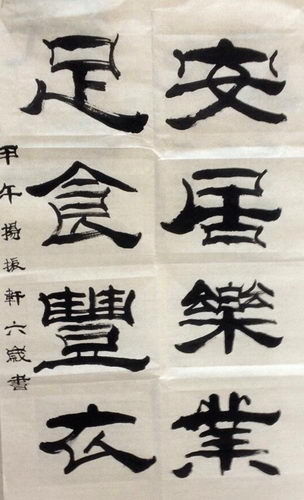 安居樂業
足食豐衣
甲午揚振軒六歲書